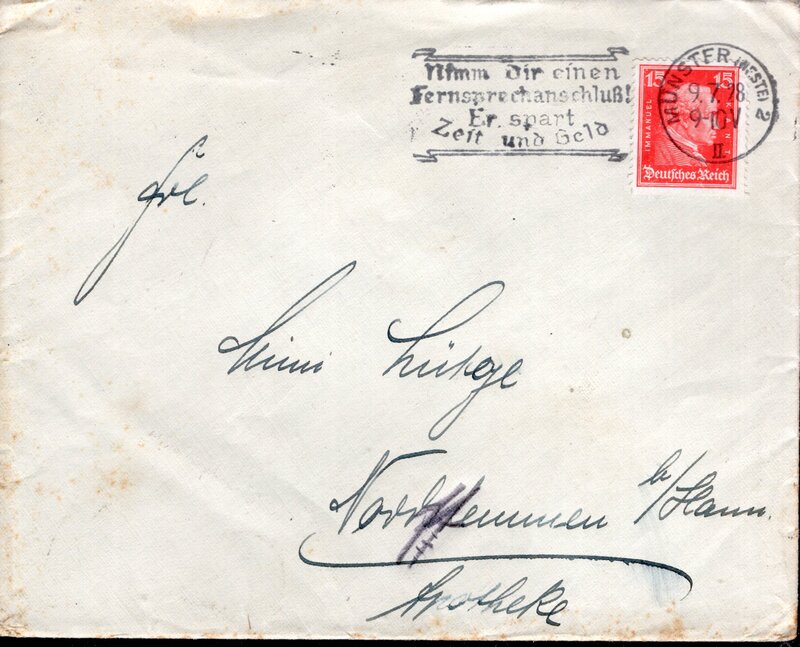 Nimm dir einen
Fernsprechanschluß!
Er spart
Zeit und Geld
MÜNSTER (WESTF) 2
9.7.28
9-10V
II
15 15
IMMANUEL KANT
Deutsches Reich
Frl.
Mimi Lütge
Nordstemmen b/Hann.
Apotheke